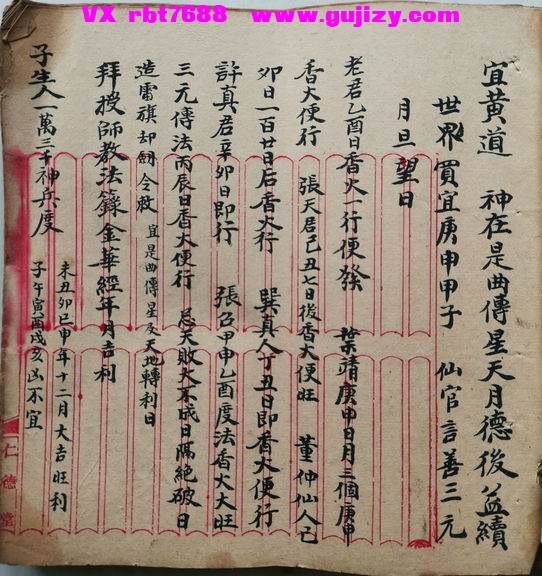 VX rbt7688 www.gujizy.com
宜黃道 神在是曲傳星天月德後益續
世界買宜庚申甲子 仙官言善三元
月旦望日
老君乙酉日香火一行便發 葉靖庚申日月三個庚申
香大便行 張天君己丑七日後香大便旺 董仲仙人己
卯日一百廿日后香火行 巽真人丁丑日即香大便行
許真君辛卯日即行 張 甲申乙酉度法香大大旺
三元傳法丙辰日香大便行 忌天敗大不成日隔絕破日
造雷旗却劄令敕 宜是曲傳星及天地轉利日
拜授師教法籙金華經年月吉利
子生人一萬三千神兵度
未丑卯巳申年十二月大吉旺利
子午寅酉戌亥凶不宜
仁德堂